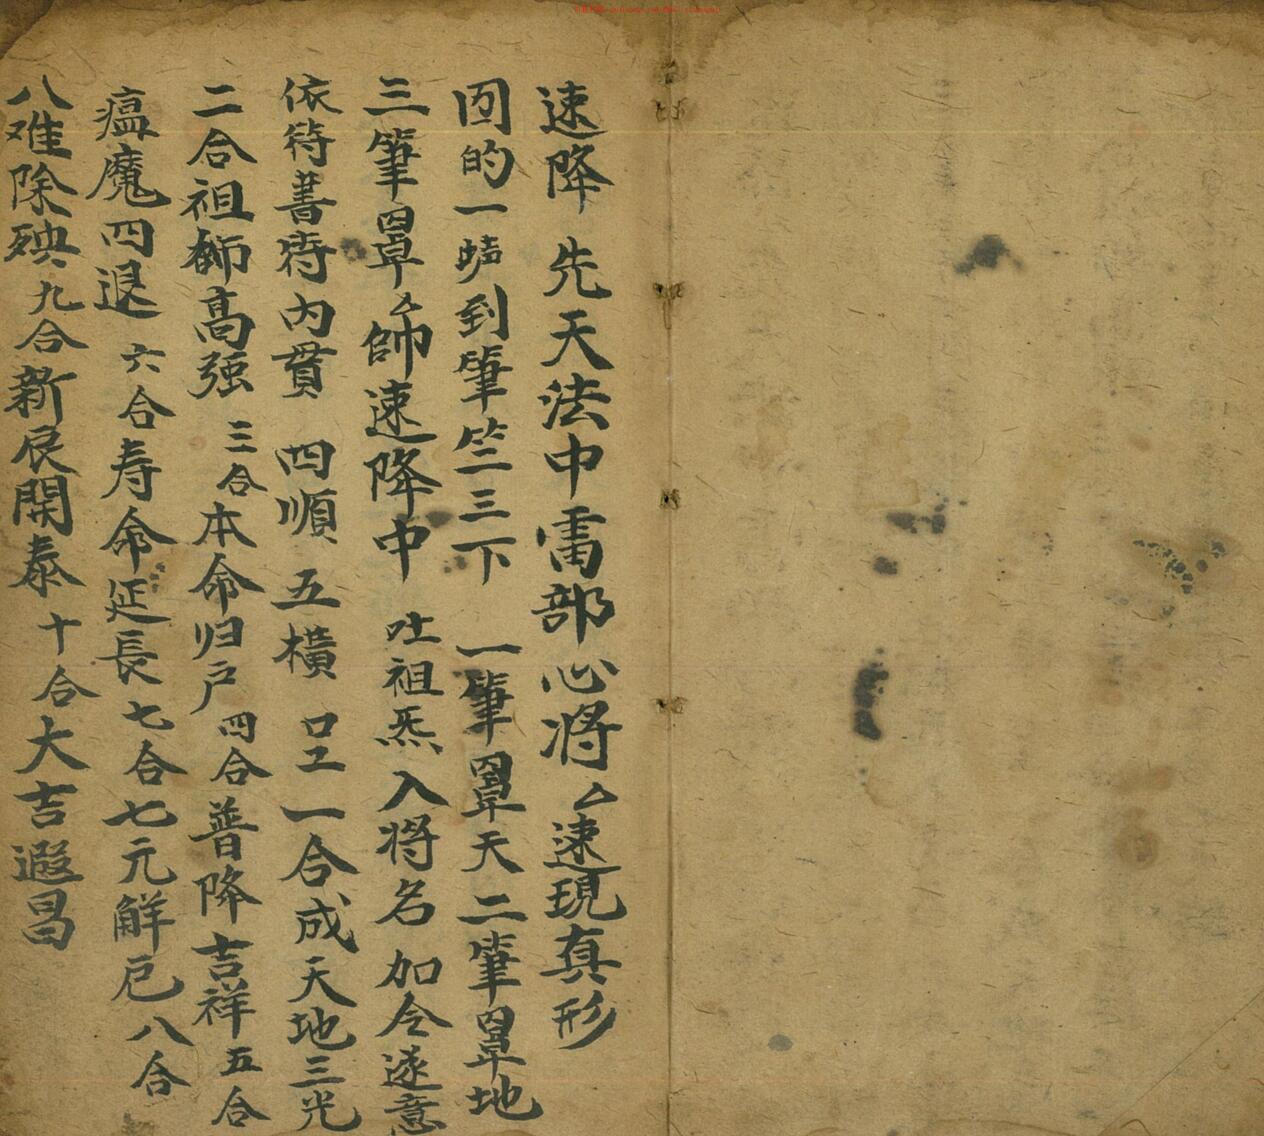 速降 先天法中雷部心将厶速現真形
囬的一声到筆竺三下 一筆罩天二筆罩地
三筆罩厶帥速降中 吐祖炁入将名 加令遂意
依待書待内貫 四順 五橫 口工 一合成天地三光
二合祖師高强 三合本命归户 四合普降吉祥 五合
瘟魔四退 六合寿命延長 七合七元解厄 八合
八难除殃 九合新辰開泰 十合大吉遐昌